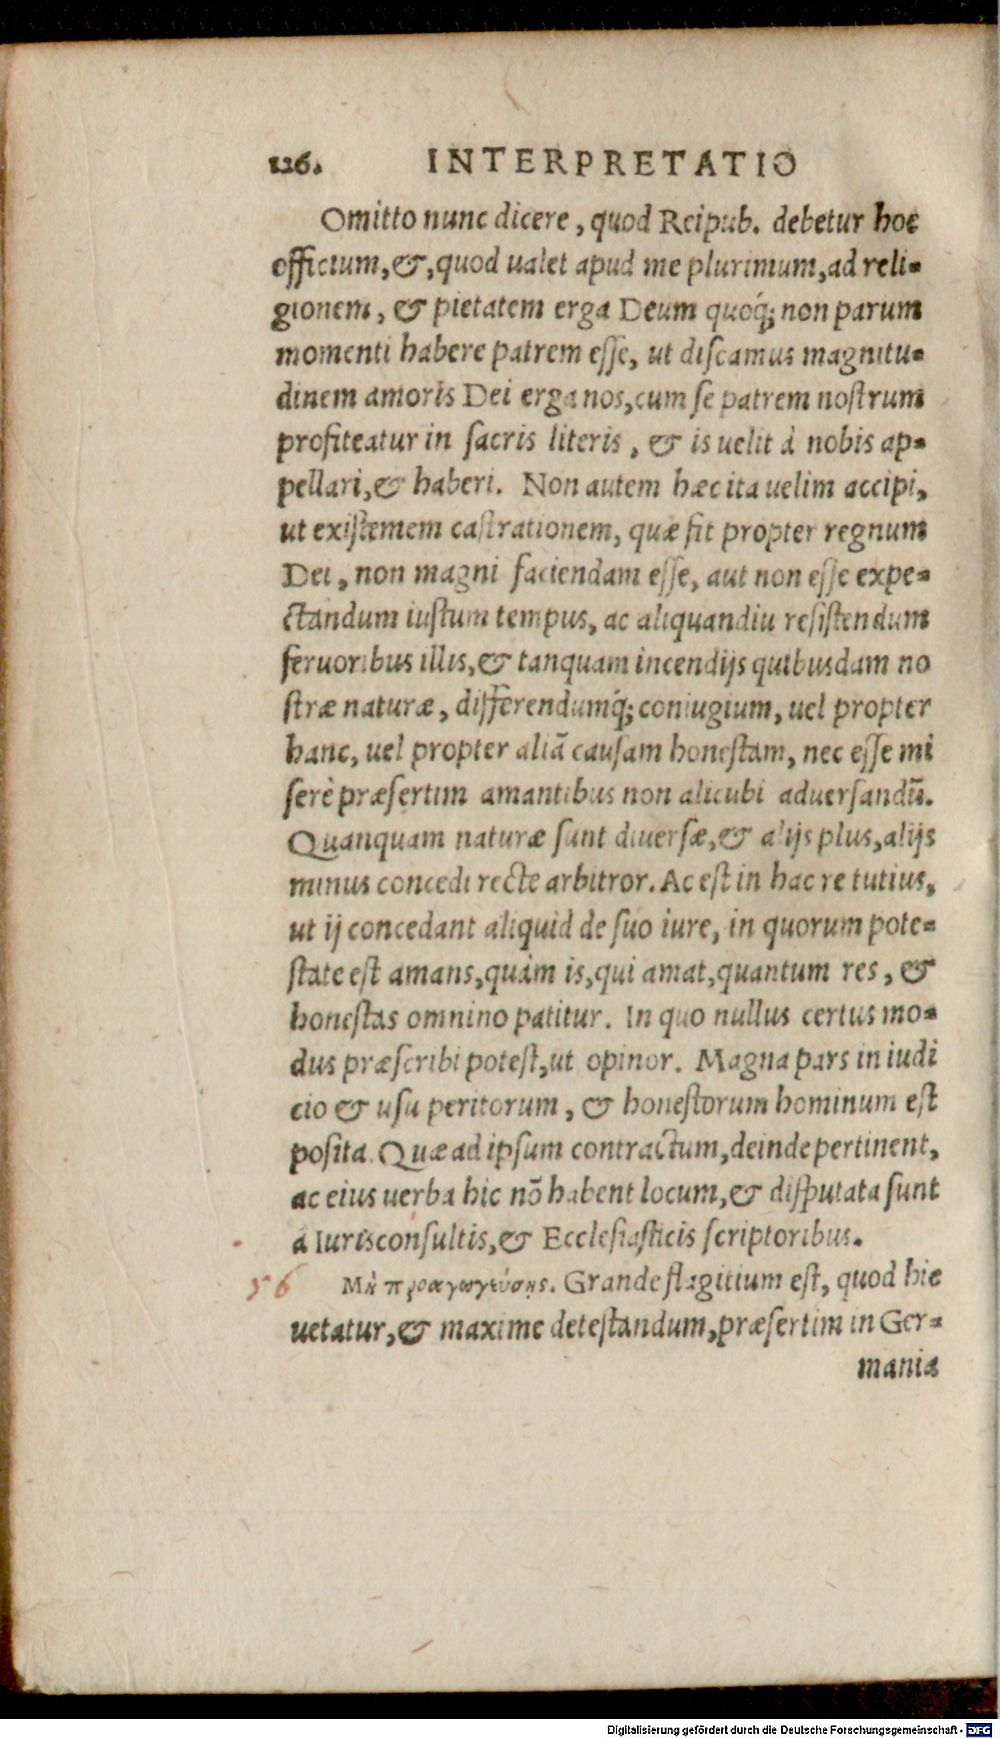 126. INTERPRETATIO
Omitto nunc dicere, quod Reipub. debetur hoc
officium, &, quod ualet apud me plurimum, ad reli-
gionem, & pietatem erga Deum quoq́; non parum
momenti habere patrem esse, ut discamus magnitu-
dinem amoris Dei erga nos, cum se patrem nostrum
profiteatur in sacris literis, & is uelit à nobis ap-
pellari, & haberi. Non autem hæc ita uelim accipi,
ut existemem castrationem, quæ fit propter regnum
Dei, non magni faciendam esse, aut non esse expe-
ctandum iustum tempus, ac aliquandiu resistendum
feruoribus illis, & tanquam incendijs quibusdam no
stræ naturæ, differendumq́; coniugium, uel propter
hanc, uel propter aliã causam honestam, nec esse mi
serè præsertim amantibus non alicubi aduersandũ.
Quanquam naturæ sunt diuersæ, & alijs plus, alijs
minus concedi recte arbitror. Ac est in hac re tutius,
ut ij concedant aliquid de suo iure, in quorum pote-
state est amans, quàm is, qui amat, quantum res, &
honestas omnino patitur. In quo nullus certus mo-
dus præscribi potest, ut opinor. Magna pars in iudi
cio & usu peritorum, & honestorum hominum est
posita. Quæ ad ipsum contractum, deinde pertinent,
ac eius uerba hic nõ habent locum, & disputata sunt
à Iurisconsultis, & Ecclesiasticis scriptoribus.
56 Μὴ προαγωγεύσῃς. Grande flagitium est, quod hic
uetatur, & maxime detestandum, præsertim in Ger-
mania
Digitalisierung gefördert durch die Deutsche Forschungsgemeinschaft - DFG